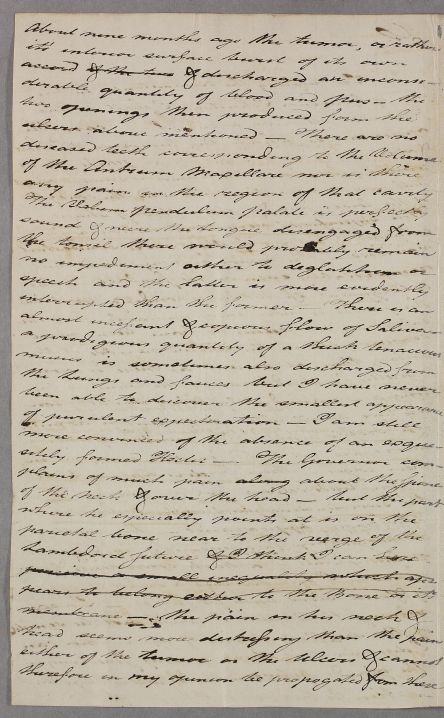 About nine months ago the tumor, or rather
its interior surface burst of its own
accord & the two & discharged an inconsi-
derable quantity of blood and pus — the
two openings then produced form the
ulcers above mentioned — There are no
diseased teeth corresponding to the
of the Antrum Maxillare nor is there
any pain in the region of that cavity
The Velum pendulum palate is perfectly
sound & were the tongue disengaged from
the tonsil there would probably remain
no impediment either to deglutition or
speech and the latter is more evidently
interrupted than the former — There is an
almost incessant & copious flow of Saliva
a prodigious quantity of a thick tenaceous
mucus is sometimes also discharged from
the lungs and fauces but I have never
been able to discover the smallest appearance
of purulent expectoration — I am still
more convinced of the absence of an exqui-
sitely formed Hectic — The Governor com-
plains of much pain along about the
of the neck & over the head — but the part
where he especially points at is on the
parietal bone near to the verge of the
Lambdoid suture & I think I can
perceive a small inequality which ap-
pears to belong either to the Bone or its
membrane — the pain in his neck &
head seems more distressing than the pain
either of the tumor or the Ulcers & cannot
therefore in my opinion be propogated from these